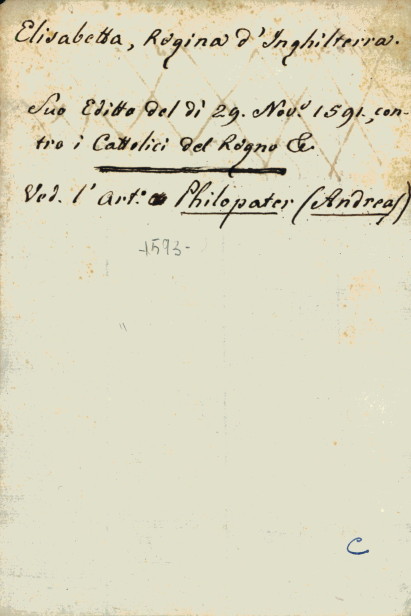 Elisabetta, Regina d'Inghilterra.
Suo Editto del dì 29. Nov.º 1591., con-
tro i Cattolici del Regno &.
Ved. l'Art.º Philopater (Andreas)
-1593-
C